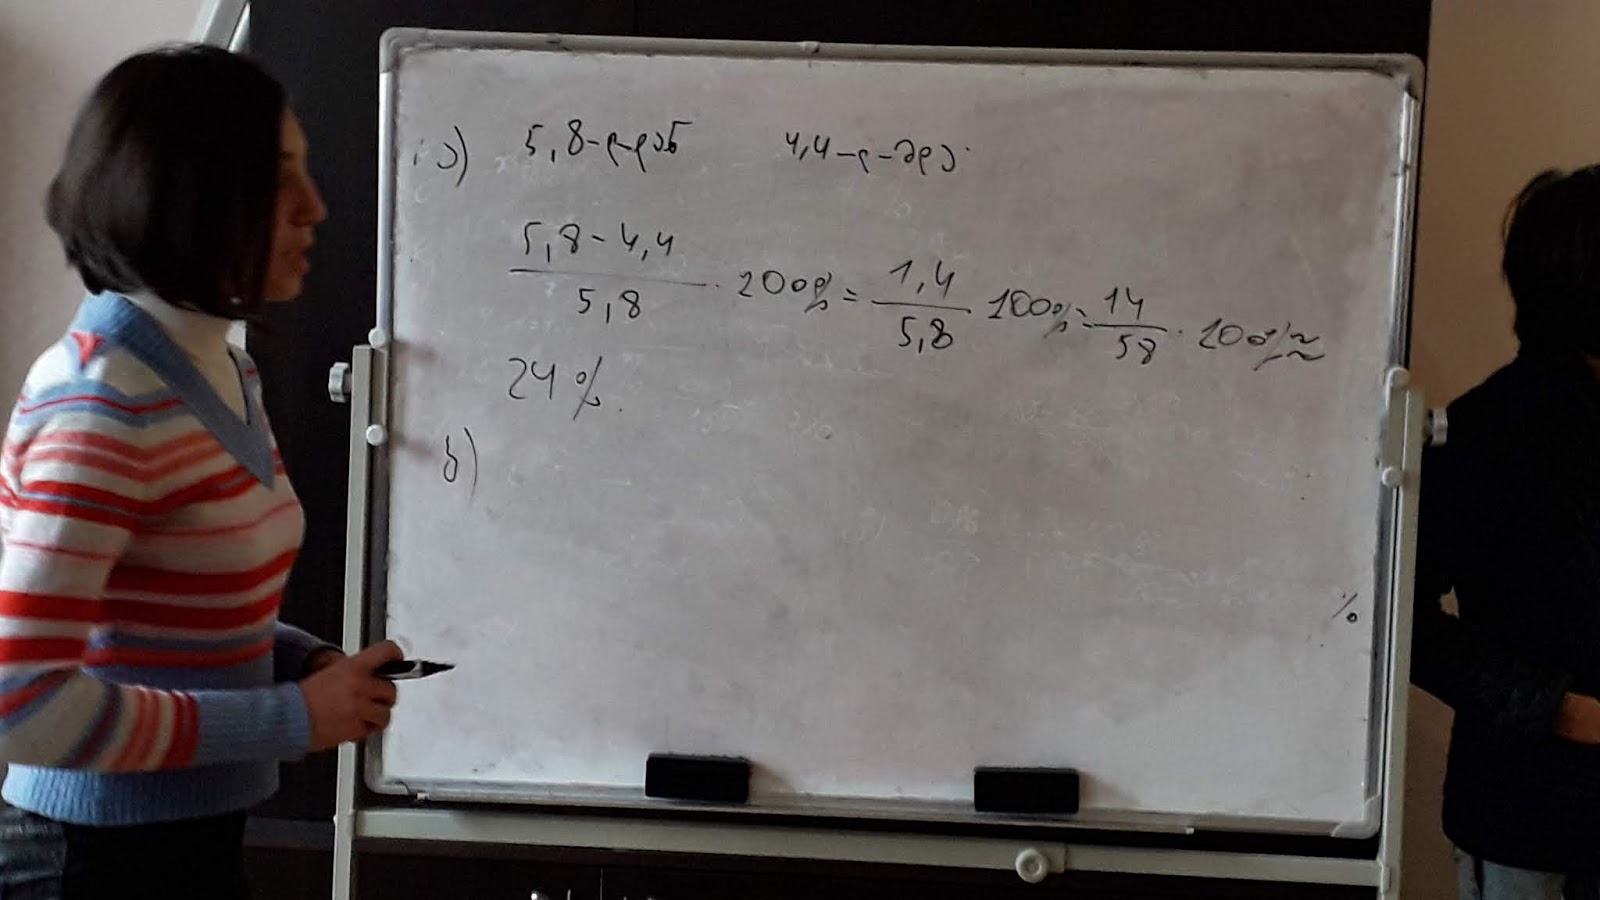 ა) 5,8-ლ-დან 4,4-ლ-მდე.
5,8-4,4 / 5,8 · 100% = 1,4 / 5,8 · 100% = 14 / 58 · 100% ≈
24%.
ბ)
%